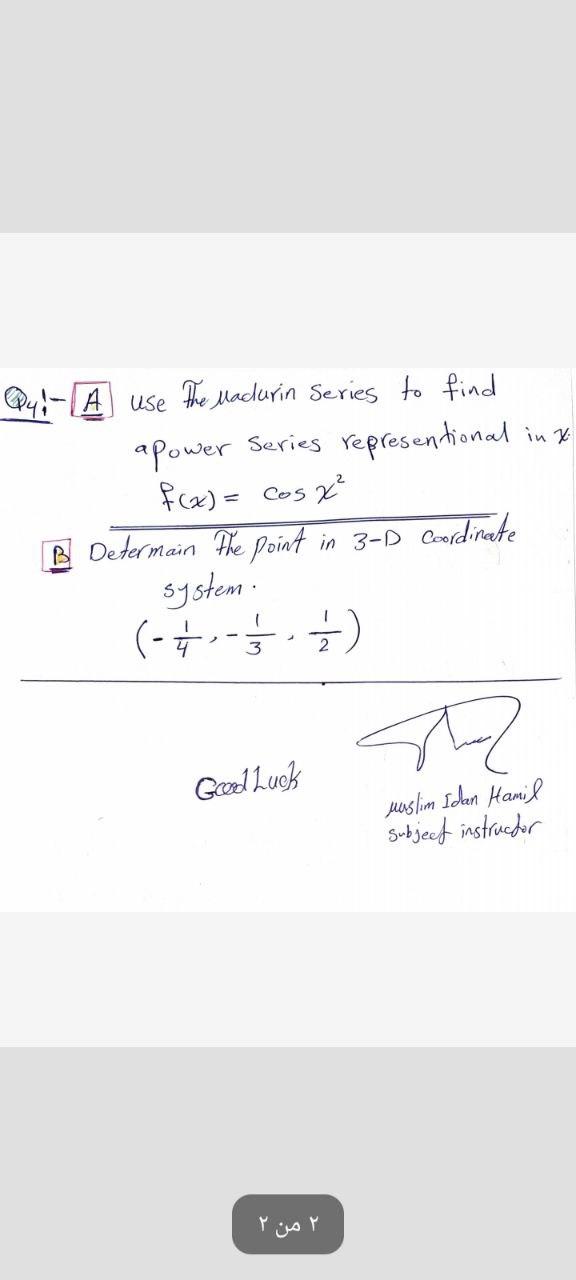 Q4:- A use The Maclurin Series to find
a power series representional in x.
f(x) = cos x²
B Determain the point in 3-D Coordinate
system.
(-1/4, -1/3, 1/2)
Good Luck
Muslim Idan Hamil
subject instructor
٢ من ٢